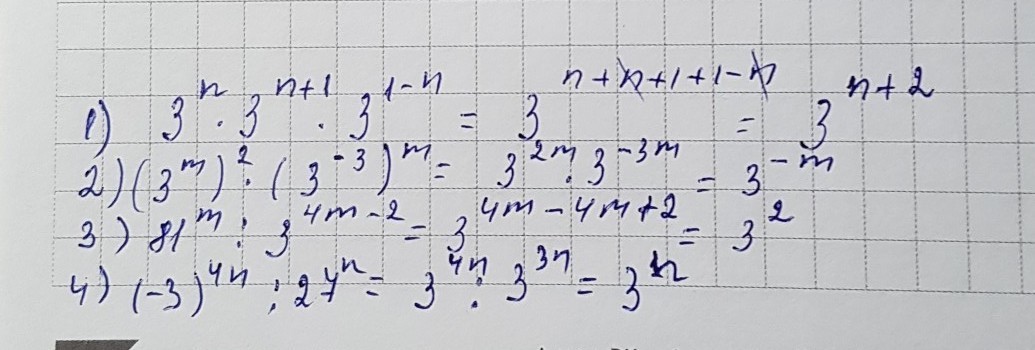 1) 3^n · 3^(n+1) · 3^(1-n) = 3^(n+n+1+1-n) = 3^(n+2)
2) (3^m)^2 · (3^-3)^m = 3^2m · 3^-3m = 3^-m
3) 81^m : 3^(4m-2) = 3^(4m-4m+2) = 3^2
4) (-3)^4n : 27^n = 3^4n : 3^3n = 3^n